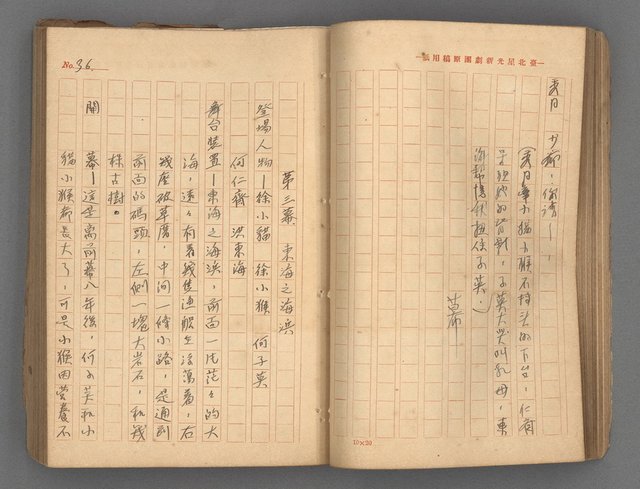 臺北星光新劇團原稿用紙
秀月 少爺，你請—，
（秀月牽小貓小猴不持头的下台，仁齋
子英大哭叫乳母，東
海幫忙秋極侠子英，）
No. 36
第三幕 東海之海浜
登場人物—徐小貓 徐小猴 何子英
何仁齋 洪東海
舞台裝置—東海之海浜，前面一片茫々的大
海，遠々有着幾隻漁船在浮蕩着，右
幾座破草厝，中间一條小路，是通到
前面的碼頭，左側一塊大岩石，和幾
株古樹。
開 幕—這是离前幕八年後，何子英和小
貓小猴都長大了，可是小猴因营養不
10×20